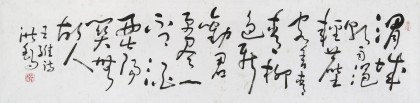 渭城
朝雨浥
輕塵
客舍青
青柳
色新
勸君
更盡
一杯酒
西出陽
關無
故人
王維詩